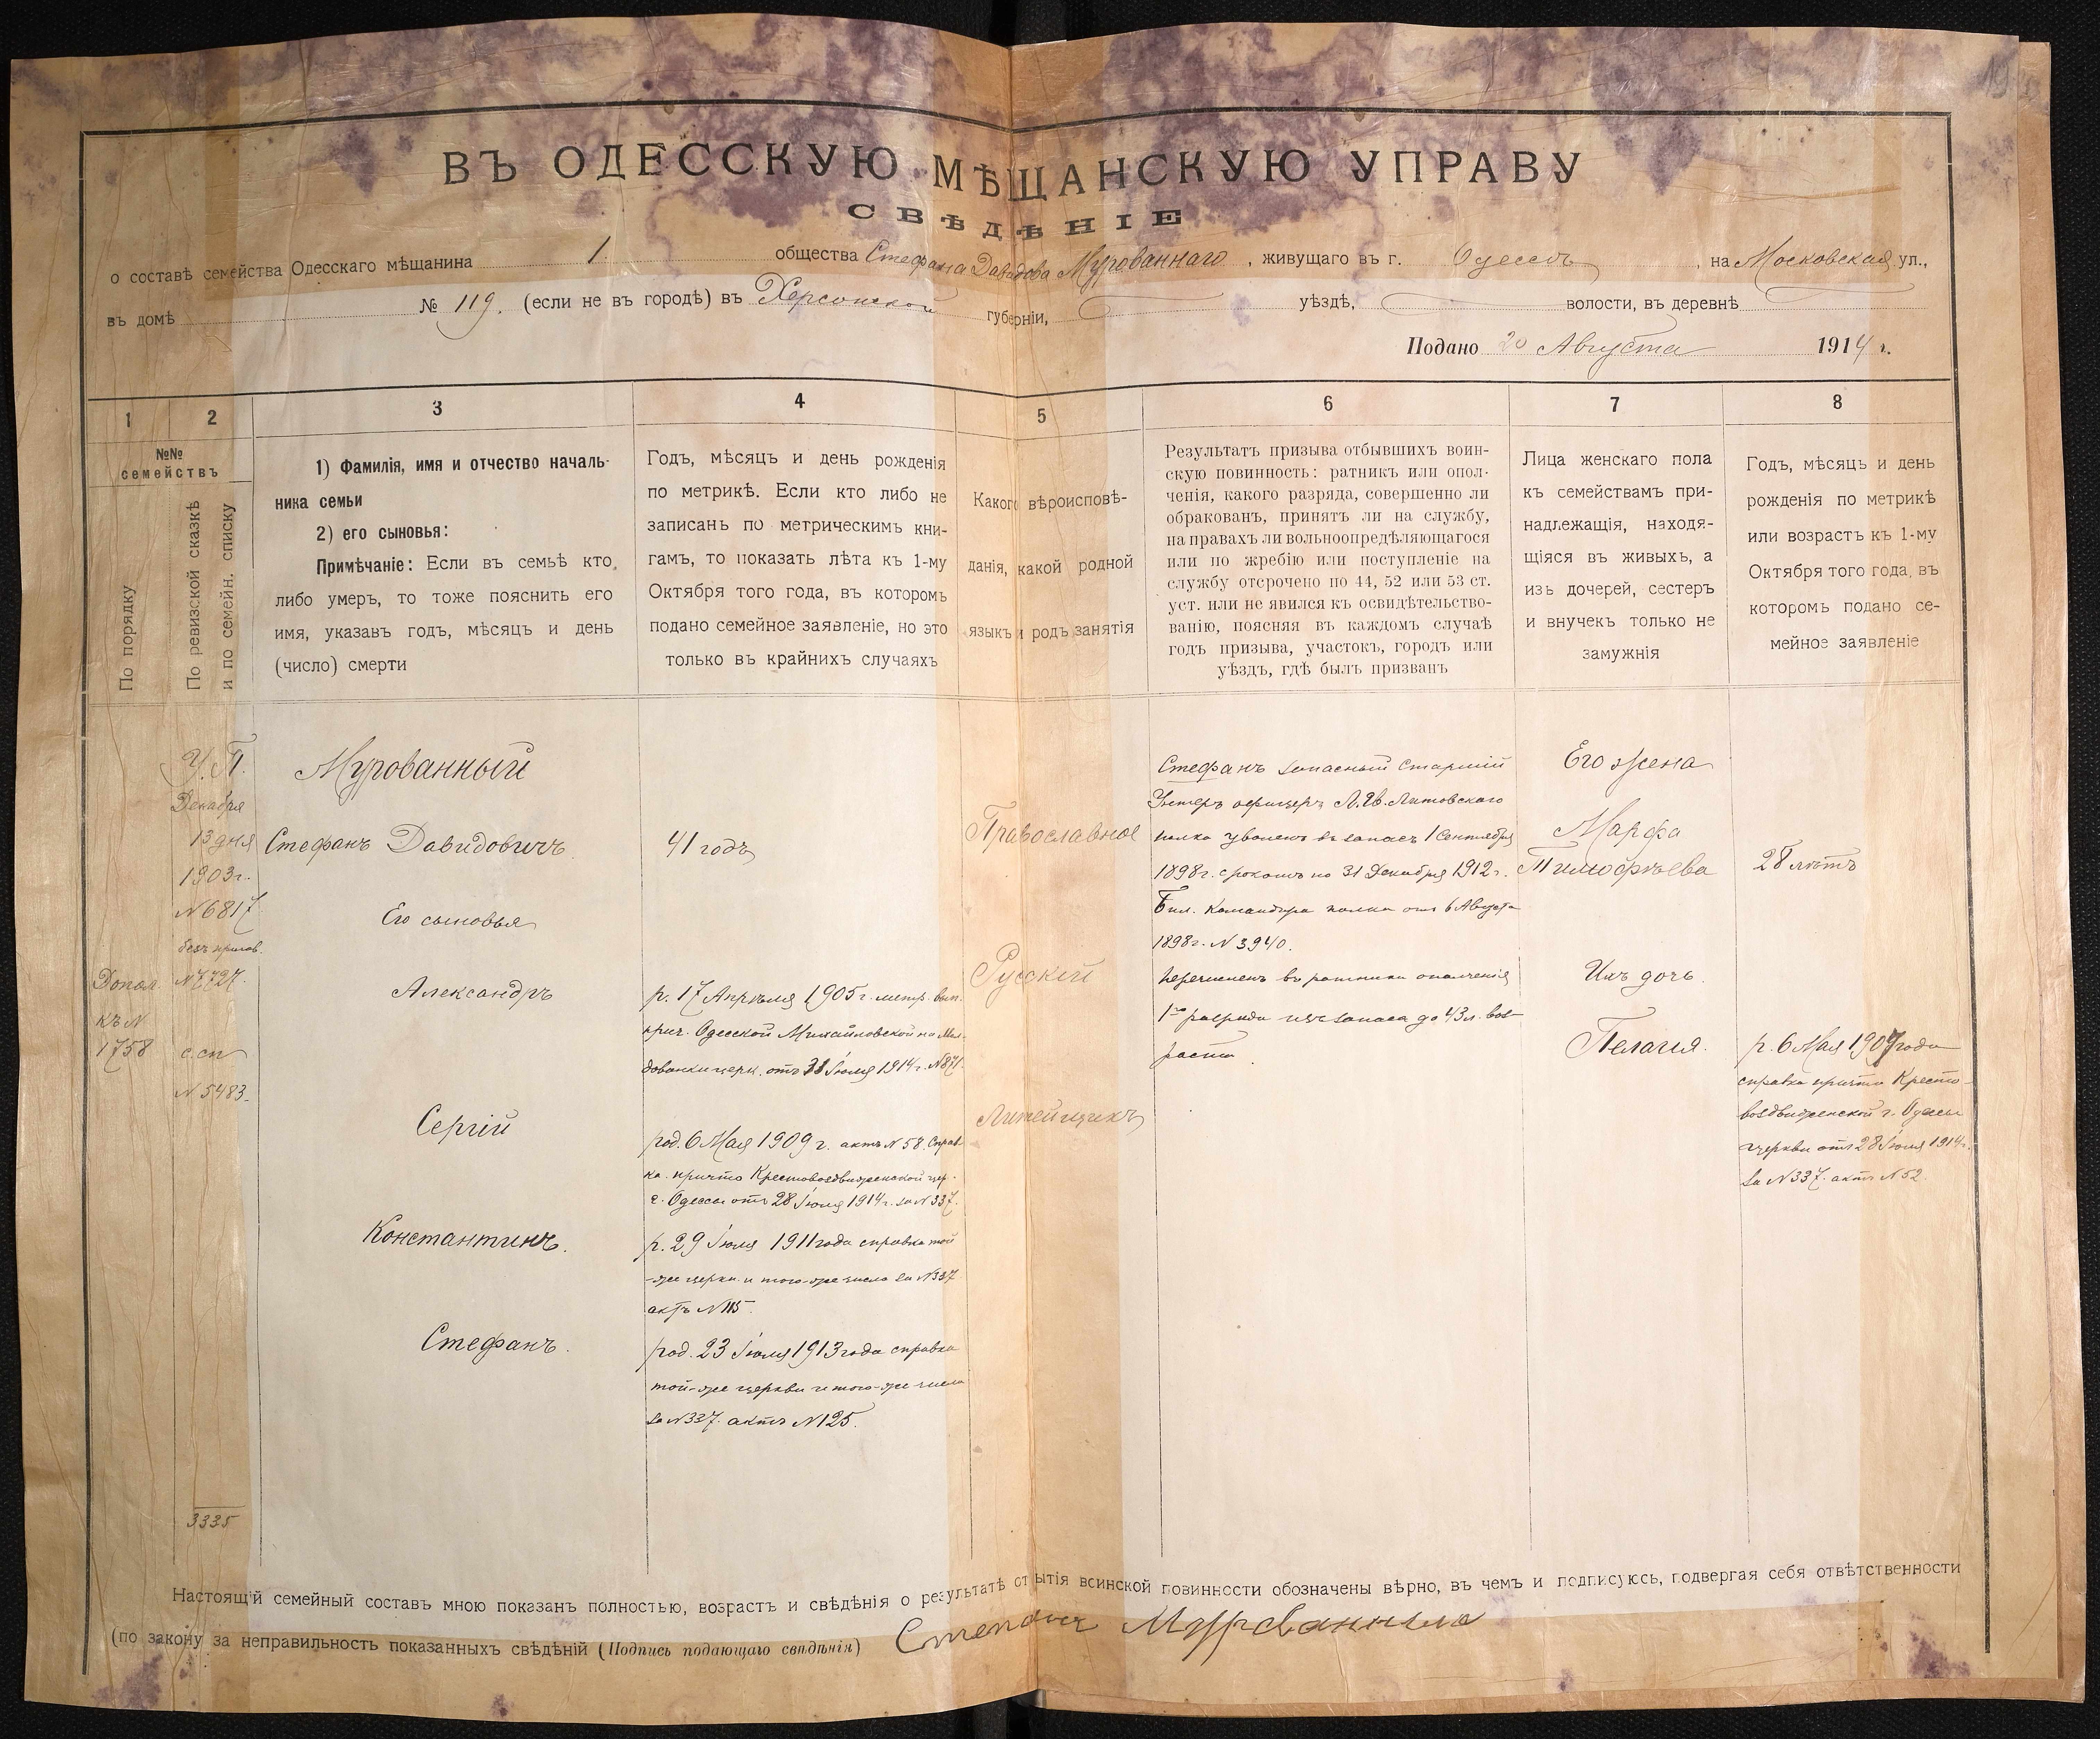 19
ВЪ ОДЕССКУЮ МѢЩАНСКУЮ УПРАВУ
СВѢДѢНІЕ
о составѣ семейства Одесскаго мѣщанина 1. общества Стефана Давидова Мурованнаго, живущаго въ г. Одессѣ, на Московская ул.,
въ домѣ № 119. (если не въ городѣ) въ Херсонской губерніи, уѣздѣ, волости, въ деревнѣ
Подано 20 Августа 1914 г.
1
2
3
4
5
6
7
8
№№
семействъ
По порядку
По ревизской сказкѣ
и по семейн. списку
1) Фамилія, имя и отчество началь-
ника семьи
2) его сыновья:
Примѣчаніе: Если въ семьѣ кто
либо умеръ, то тоже пояснить его
имя, указавъ годъ, мѣсяцъ и день
(число) смерти
Годъ, мѣсяцъ и день рожденія
по метрикѣ. Если кто либо не
записанъ по метрическимъ кни-
гамъ, то показать лѣта къ 1-му
Октября того года, въ которомъ
подано семейное заявленіе, но это
только въ крайнихъ случаяхъ
Какого вѣроисповѣ-
данія, какой родной
языкъ и родъ занятія
Результатъ призыва отбывшихъ воин-
скую повинность: ратникъ или опол-
ченія, какого разряда, совершенно ли
обракованъ, принятъ ли на службу,
на правахъ ли вольноопредѣляющагося
или по жребію или поступленіе на
службу отсрочено по 44, 52 или 53 ст.
уст. или не явился къ освидѣтельство-
ванію, поясняя въ каждомъ случаѣ
годъ призыва, участокъ, городъ или
уѣздъ, гдѣ былъ призванъ
Лица женскаго пола
къ семействамъ при-
надлежащія, находя-
щіяся въ живыхъ, а
изъ дочерей, сестеръ
и внучекъ только не
замужнія
Годъ, мѣсяцъ и день
рожденія по метрикѣ
или возрастъ къ 1-му
Октября того года, въ
которомъ подано се-
мейное заявленіе
Допол.
къ N
1758
У. П.
Декабря
13 дня
1903 г.
N 6817
безъ
N 7727.
с. сп
N 5483.
3335
Мурованный
Стефанъ Давидовичъ
Его сыновья
Александръ
Сергій
Константинъ.
Стефанъ.
41 годъ
р. 17 Апрѣля 1905 г. метр. вып.
прич. Одесской Михайловской на Мол-
дованки церк. отъ 31 Іюля 1914 г. N 871.
род. 6 Мая 1909 г. актъ N 58. Справ-
ка причта Крестовоздвиженской цер.
г. Одессы отъ 28 Іюля 1914 г. за N 337.
р. 29 Іюля 1911 года справка той
-же церкви и того-же числа за N 337
актъ N 115.
род. 23 Іюля 1913 года справка
той-же церкви и того-же числа
за N 337. актъ N 125.
Православное
Русскій
Литейщикъ
Стефанъ запасный старшій
Унтеръ офицеръ Л. Гв. Литовскаго
полка уволенъ въ запасъ 1 Сентября
1898 г. срокомъ по 31 Декабря 1912 г.
Бил. Командира полка отъ 6 Августа
1898 г. N 3940.
перечисленъ въ ратники ополченія
1го разряда изъ запаса до 43 л. воз-
раста.
Его жена
Марфа
Тимофѣева
Ихъ дочь.
Пелагія.
28 лѣтъ
р. 6 Мая 1907 года
справка причта Кресто-
воздвиженской г. Одессы
церкви отъ 28 Іюля 1914 г.
за N 337. актъ N 52.
Настоящій семейный составъ мною показанъ полностью, возрастъ и свѣдѣнія о результатѣ отбытія воинской повинности обозначены вѣрно, въ чемъ и подписуюсь, подвергая себя отвѣтственности
(по закону за неправильность показанныхъ свѣдѣній (Подпись подающаго свѣдѣнія) Степанъ Мурованный